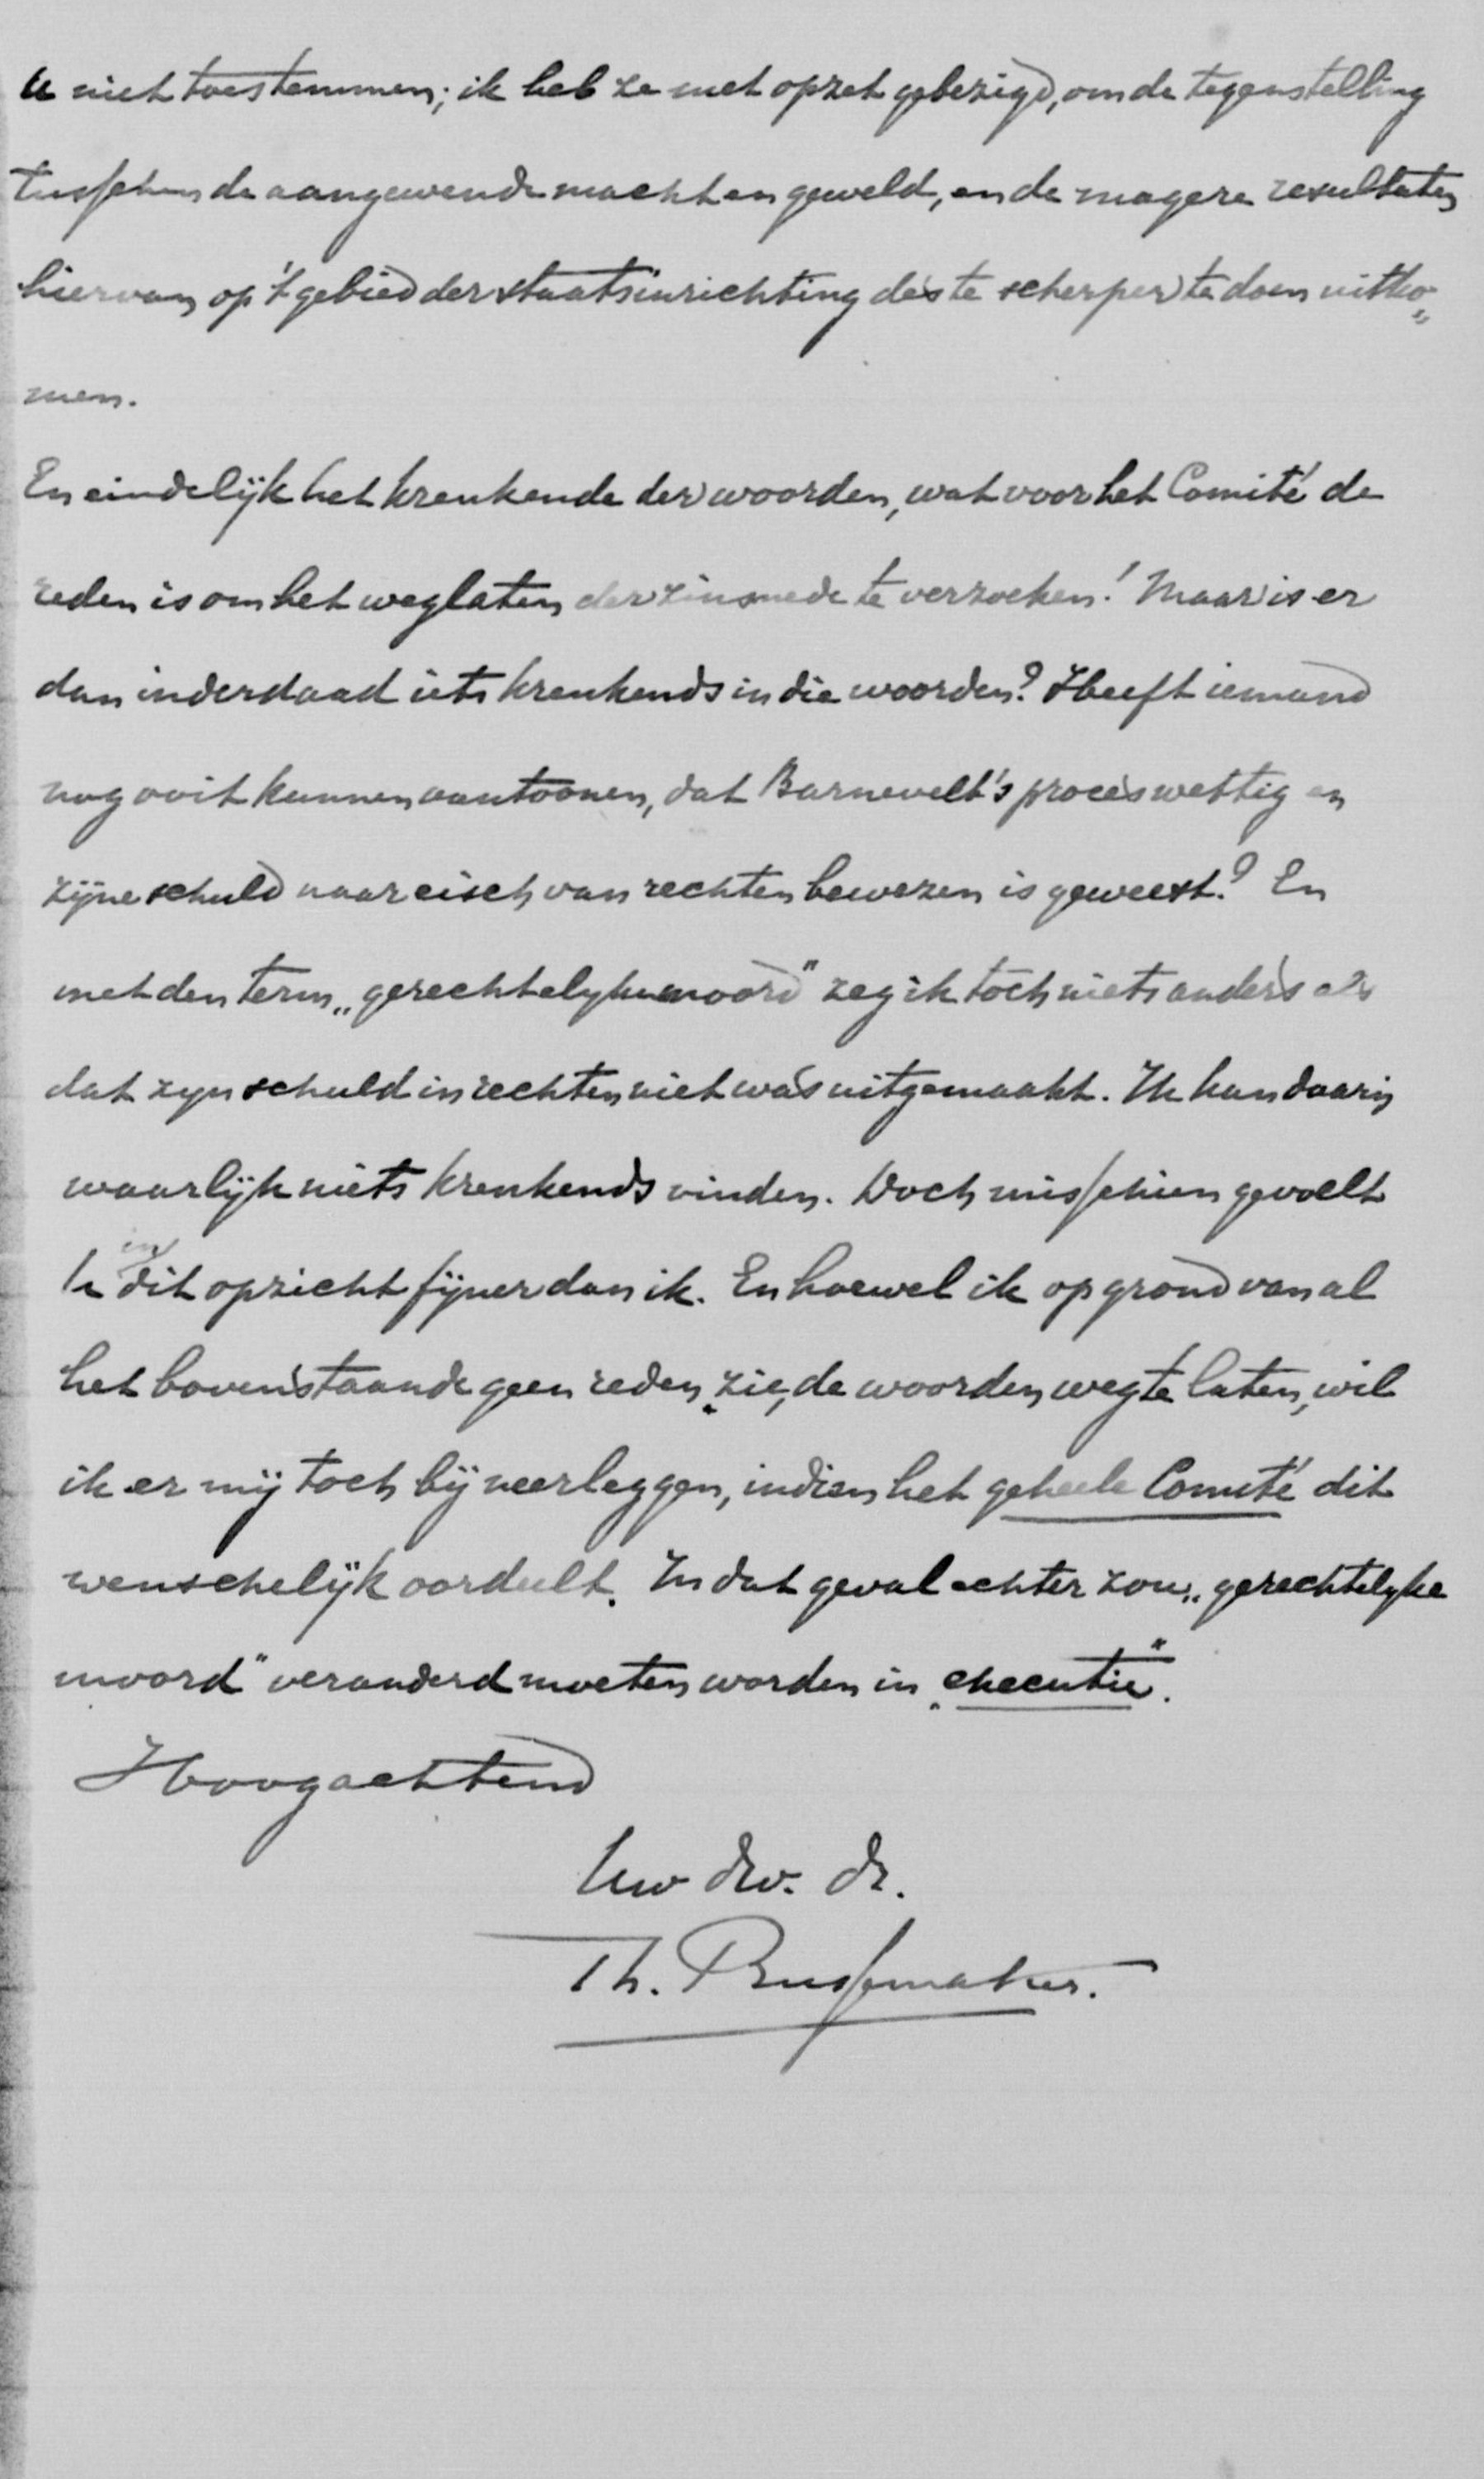 U niet toestemmen; ik heb ze met opzet gebezigd, om de tegenstelling
tusschen de aangewende macht en geweld, en de magere resultaten
hiervan op 't gebied der staatsinrichting des te scherper te doen uitko„
men.
En eindelijk het krenkende der woorden, wat voor het Comité de
reden is om het weglaten der zinsnede te verzoeken! Maar is er
dan inderdaad iets krenkends in die woorden? Heeft iemand
nog ooit kunnen aantoonen, dat Barnevelt's proces wettig en
zijne schuld naar eisch van rechten bewezen is geweest? En
met den term „gerechtelyke moord" zeg ik toch niets anders als
dat zyn schuld in rechten niet was uitgemaakt. Ik kan daarin
waarlijk niets krenkends vinden. Doch misschien gevoelt
U in dit opzicht fijner dan ik. En hoewel ik op grond van al
het bovenstaande geen reden zie, de woorden weg te laten, wil
ik er mij toch bij neerleggen, indien het geheele Comité dit
wenschelijk oordeelt. In dat geval echter zou „gerechtelyke
moord" veranderd moeten worden in „executie".
Hoogachtend
Uw dw. dr.
Th. Bussemaker.